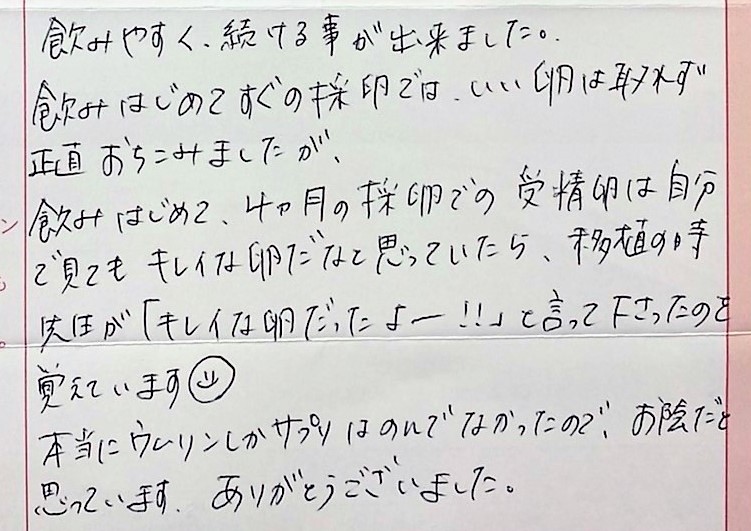 飲みやすく、続ける事が出来ました。
飲みはじめてすぐの採卵では、いい卵は取れず
正直おちこみましたが、
飲みはじめて、4ヶ月の採卵での受精卵は自分
で見てもキレイな卵だなと思っていたら、移植の時
先生が「キレイな卵だったよー!!」と言って下さったのを
覚えています
本当にウムリンしかサプリはのんでなかったので、お陰だと
思っています。ありがとうございました。